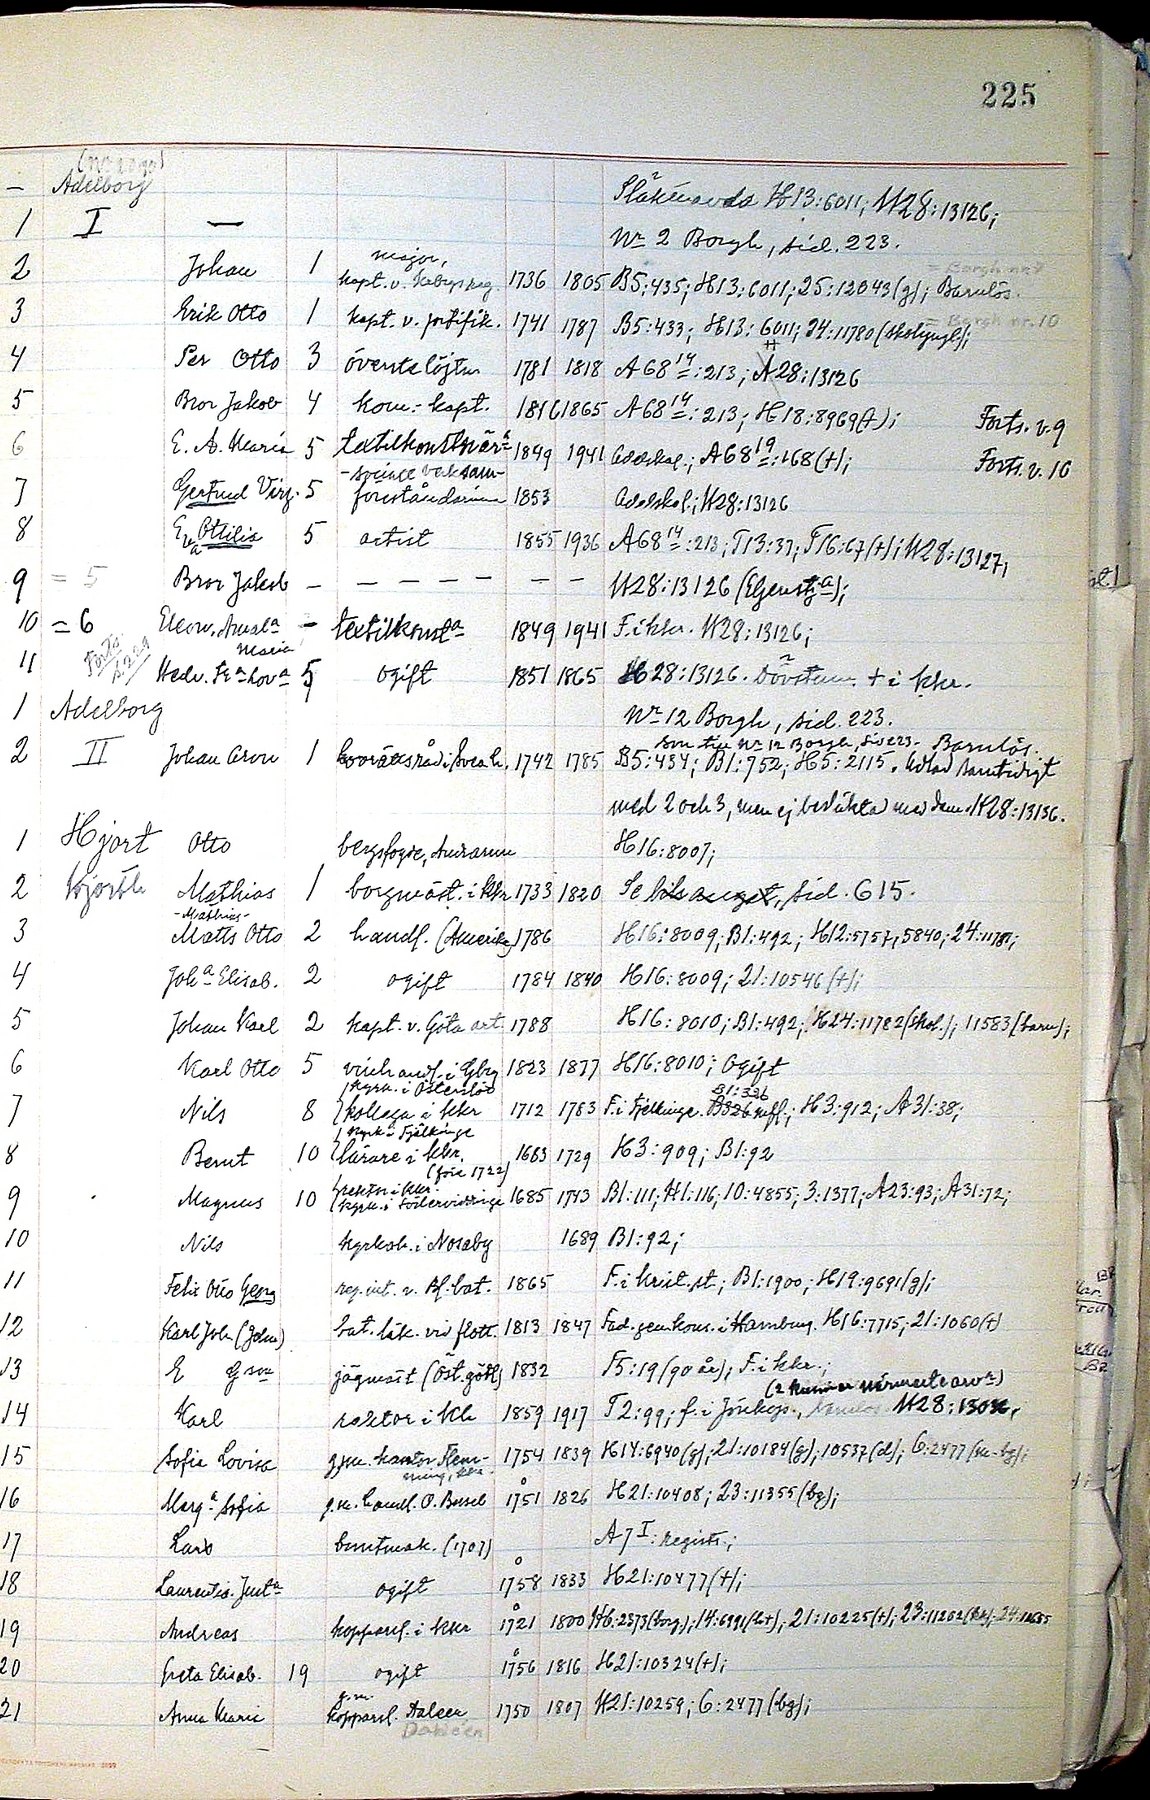 225
— Adelborg
Släkttavla H13:6011; H28:13126;
1 I —
Nr 2 Borgh, sid. 223.
major,
= Borgh nr 8
2 Johan 1 kapt. v. 1736 1805 B5:435; H13:6011; 25:12043(g); Barnlös.
= Borgh nr. 10
3 Erik Otto 1 kapt. v. fortifik. 1741 1787 B5:433; H13:6011; 24:11780
4 Per Otto 3 överstelöjtn 1781 1818 A68 14:213; A28:13126
H
5 Bror Jakob 4 kom.-kapt. 1816 1865 A68 14:213; H18:8969(+); Forts. v. 9
6 E. A. Maria 5 textilkonstnär a 1849 1941 adelskal.; A68 19:168(+); Forts. v. 10
7 Gertrud Virg. 5 föreståndarinna 1853 adelskal; H28:13126
8 Eva Ottilia 5 artist 1855 1936 A68 14:213; T13:37; T16:67(+); H28:13127,
9 = 5 Bror Jakob — — — — — — — H28:13126
10 = 6 Eleon. Amal a Maria – textilkonst a 1849 1941 F. i kkr. H28:13126;
Forts. s. 229
11 Hedv. Lov a 5 ogift 1851 1865 H28:13126. Dövstum. + i kkr.
1 Adelborg
Nr 12 Borgh, sid. 223.
son till Nr 12 Borgh, sid 223. Barnlös.
2 II Johan Aron 1 hovrättsråd i Svea h. 1742 1785 B5:434; B1:752; H5:2115. Adlad samtidigt
med 2 och 3, men ej besläktad med dem. H28:13136.
1 Hjort Otto bergsfogde, Andrarum H16:8007;
2 Hjorth Mathias 1 borgmäst. i kkr 1733 1820 Se sid. 615.
-Mathias-
3 Matts Otto 2 handl. (Amerika) 1786 H16:8009; B1:492; H12:5757, 5840; 24:11781;
4 Joh a Elisab. 2 ogift 1784 1840 H16:8009; 21:10546(+);
5 Johan Karl 2 kapt. v. Göta art. 1788 H16:8010; B1:492; H24:11782(skol.); 11583(barn);
6 Karl Otto 5 vinhandl. i Gbg 1823 1877 H16:8010; Ogift
kyrkh. i Österslöv
B1:326
7 Nils 8 kollega i kkr 1712 1783 F. i Fjelkinge. H3:912; A31:38;
kyrkh. i Fjälkinge
8 Bernt 10 lärare i kkr. (före 1722) 1663 1729 H3:909; B1:92
rektor i kkr.
9 Magnus 10 kyrkh. i Södervidinge 1685 1743 B1:111; H1:116; 10:4855; 3:1377; A23:93; A31:72;
10 Nils kyrkoh. i Nosaby 1689 B1:92;
11 Felix Otto Georg reg. int. v. Bl. bat. 1865 F. i krist. st; B1:1900; H19:9691(g);
12 Karl Joh (John) bat. läk. vid flott. 1813 1847 Fad. gen. kons. i Hamburg. H16:7715; 21:1060(+)
13 E G jägmäst (Öst. götl) 1832 T5:19 (90 år); F. i kkr.;
14 Karl rektor i kh 1859 1917 T2:99; f. i Jönköp., H28:13036;
15 Sofia Lovisa g.m. kantor Flemming, kkr 1754 1839 H14:6940(g); 21:10184(g); 10537(d); 6:2477
16 Marg a Sofia g. m. handl. P. 1751 1826 H21:10408; 23:11355(bg);
17 Lars buntmak. (1707) A7 I: registr.;
18 Laurentia. Just a ogift 1758 1833 H21:10477(+);
19 Andreas kopparsl. i kkr 1721 1800 H6:2373(borg); 14:6991(b+); 21:10225(+); 23:11202; 24:11685
20 Greta Elisab. 19 ogift 1756 1816 H21:10324(+);
g. m.
21 Anna Maria kopparsl. Daleen 1750 1807 H21:10259; 6:2477(bg);